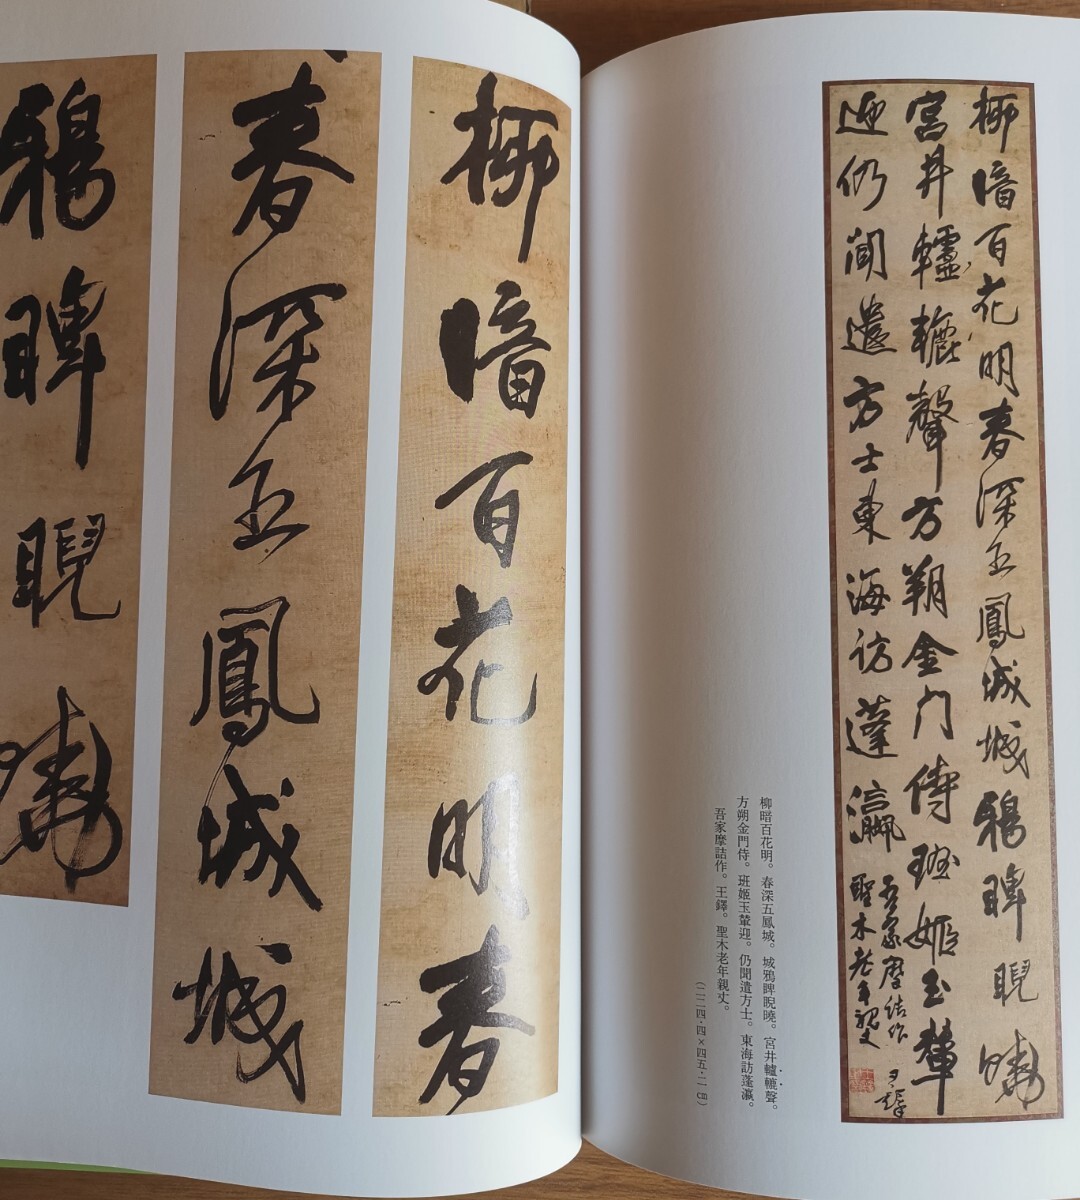 柳暗百花明春深五鳳城城鴉睥睨曉
宮井轤轆聲方朔金门侍班姬玉輦
迎仍聞遣方士東海訪蓬瀛
吾家摩詰作
聖木老年親丈
王鐸
柳暗百花明。春深五鳳城。城鴉睥睨曉。宮井轤轆聲。
方朔金門侍。班姬玉輦迎。仍聞遣方士。東海訪蓬瀛。
吾家摩詰作。王鐸。聖木老年親丈。
（二二四·四×四五·二㎝）
柳暗百花明春
春深五鳳城城
鴉睥睨曉